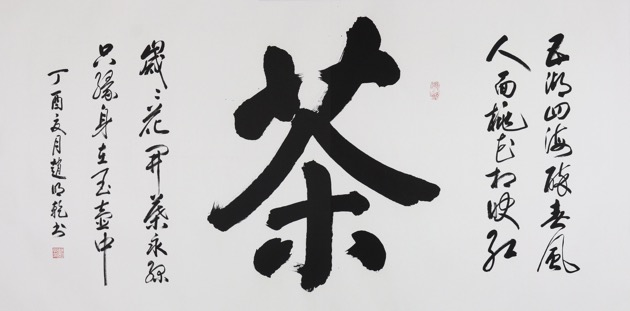 五湖四海醉春風
人面桃花相映红
茶
歲々花開葉永綠
只緣身在玉壺中
丁酉夏月趙明乾书